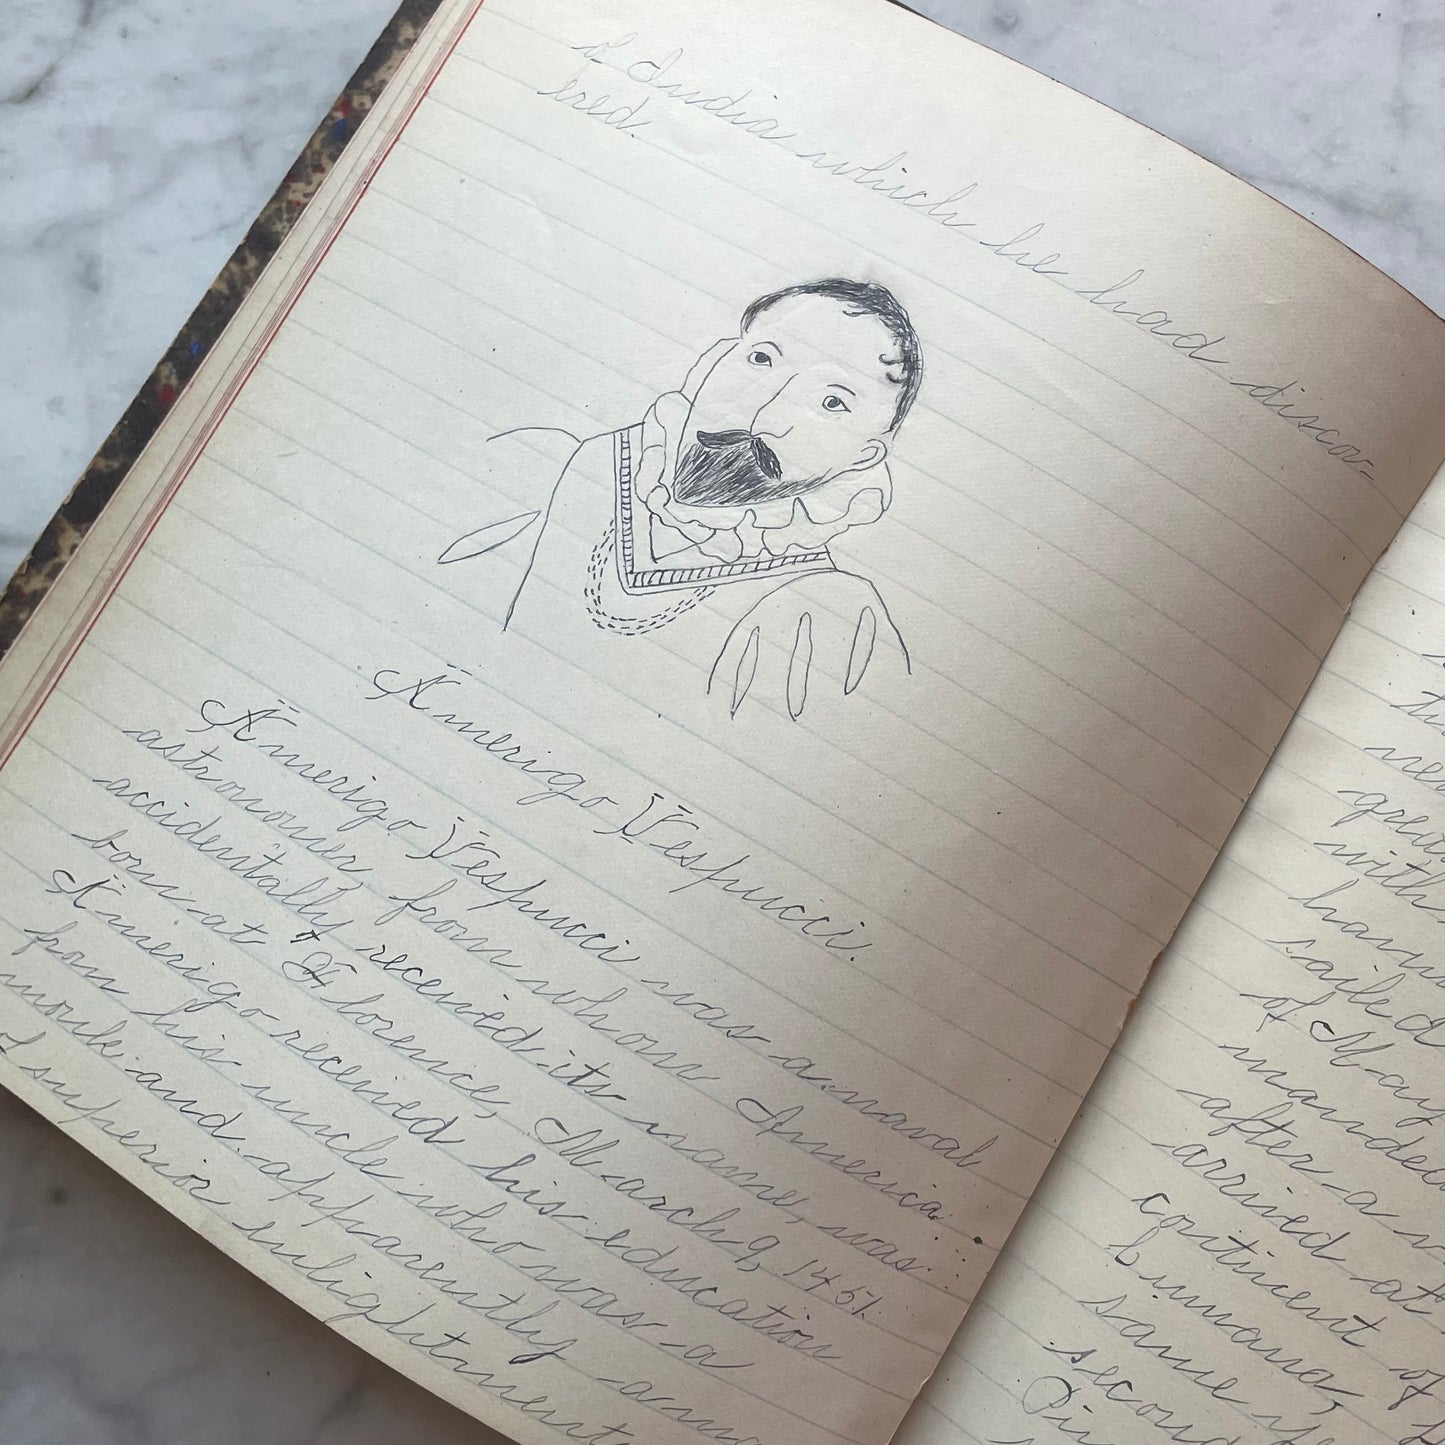 of India which he had discov=
ered.
Amerigo Vespucci.
Amerigo Vespucci was a naval
astronomer, from whom America
accidentally received its name, was
born at Florence, March 9, 1451.
Amerigo received his education
from his uncle who was a
monk and apparently a man
of superior enlightment
great
with
sailed
of May
after a
arrived at
continent of
same
second